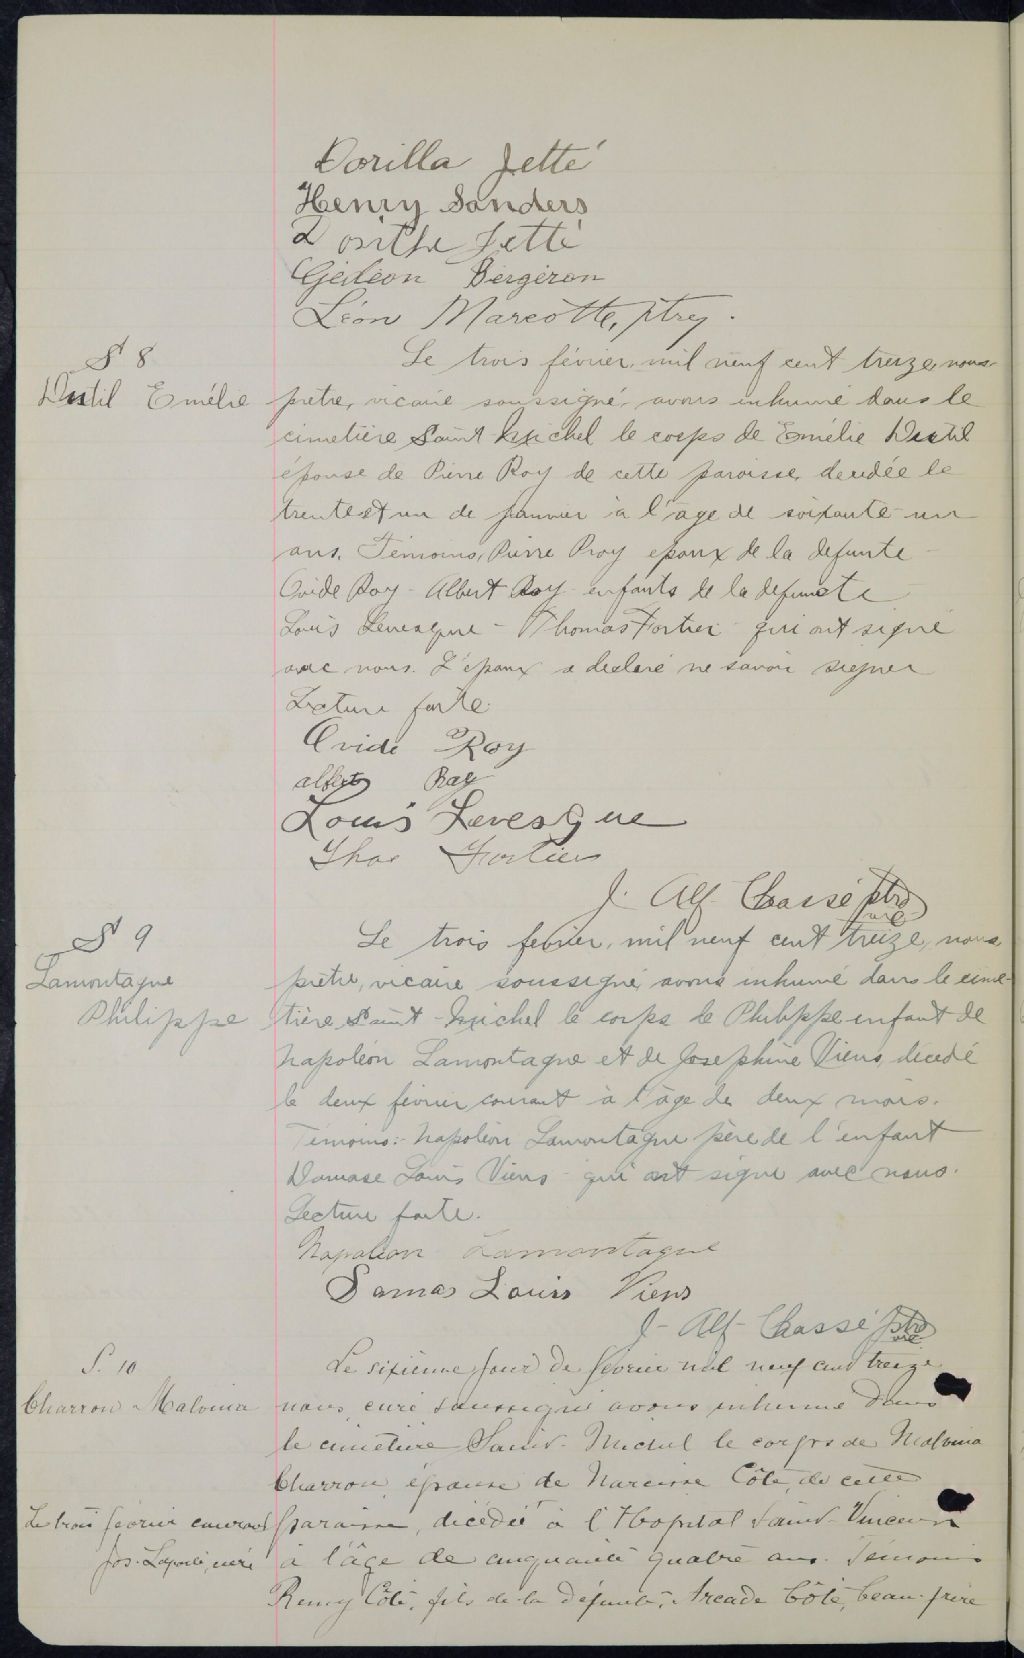 Dorilla Jetté
Henry Sanders
Dosithe Jetté
Gédéon Bergeron
Léon Marcotte, ptre
S 8
Le trois février, mil neuf cent treize, nous
Dutil Emélie
prêtre, vicaire soussigné, avons inhumé dans le
cimetière Saint Michel le corps de Emélie Dutil
épouse de Pierre Roy de cette paroisse, décédée le
trente et un de janvier à l'âge de soixante-un
ans. Témoins, Pierre Roy epoux de la defunte -
Ovide Roy - Albert Roy - enfants de la defuncte
Louis Levesque - Thomas Fortier qui ont signé
avec nous. L'epoux a declaré ne savoir signer
Lecture faite.
Ovide Roy
albert Roy
Louis Levesque
Thos Fortier
J. Alf. Chassé ptre
vic
S 9
Le trois fevrier, mil neuf cent treize, nous
Lamontagne
Philippe
prêtre, vicaire soussigné, avons inhumé dans le cime-
tière Saint-Michel le corps de Philippe enfant de
Napoléon Lamontagne et de Josephine Viens, décédé
le deux février courant à l'âge de deux mois.
Témoins:- Napoléon Lamontagne père de l'enfant
Damase Louis Viens - qui ont signé avec nous.
Lecture faite.
Napoleon Lamontagne
Damas Louis Viens
J- Alf- Chassé ptre
vic
S. 10
Le sixième jour de février mil neuf cent treize
Charron Malvina
nous, curé soussigné avons inhumé dans
le cimetière Saint-Michel le corps de Malvina
Charron, épouse de Narcisse Côté, de cette
Le trois février courant
paroisse, décédée à l'Hopital Saint-Vincent
Jos. Laporte, curé
à l'âge de cinquante quatre ans. Témoins
Remy Côté, fils de la défunte, Arcade Côté, beau-frère